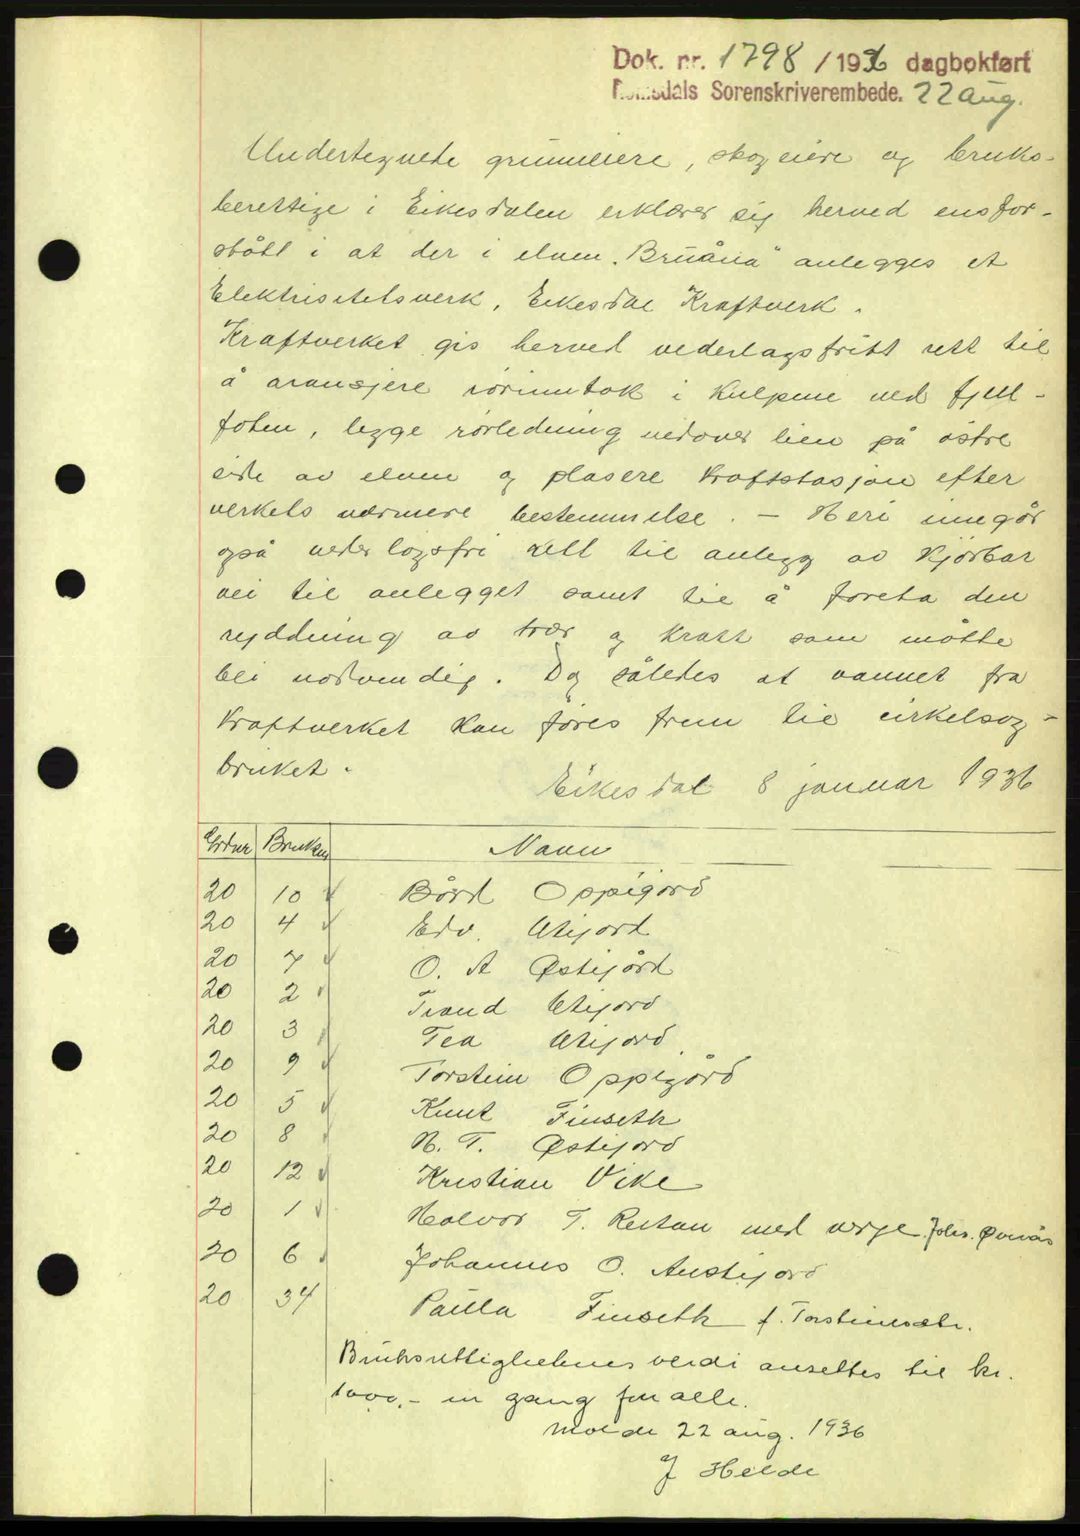 Dok. nr. 1798 / 1936 dagbokført
Romsdals Sorenskriverembede. 22 aug.
Undertegnede grunneiere, skogeiere og bruks-
berettige i Eikesdalen erklærer sig herved ensfor-
stått i at der i elven "Bruåna" anlegges et
Elektrisitetsverk, Eikesdal Kraftverk.
Kraftverket gis herved vederlagsfritt rett til
å arangjere rörinntak i Kulpene ved fjell-
foten, legge rörledning nedover lien på östre
side av elven og plasere Kraftstasjon efter
verkets nærmere bestemmelse. – Heri inngår
også vederlagsfri rett til anlegg av kjörbar
vei til anlegget samt til å foreta den
ryddning av trær og kratt som måtte
bli nödvendig. Og således at vannet fra
Kraftverket kan föres frem til cirkelsag-
bruket.
Eikesdal 8 januar 1936
Grdnr Bruksnr Navn
20 10 Bård Oppigård
20 4 Edv. Utijord
20 7 O. A Østijård
20 2 Trand Utijord
20 3 Tea Utijord
20 9 Torstein Oppigård
20 5 Knut Finseth
20 8 H. T. Østijord
20 12 Kristian Vike
20 1 Halvor T. Reitan med verge Johs. Øverås
20 6 Johannes O. Austijord
20 34 Paula Finseth f. Torsteinsdtr.
Bruksrettighetenes verdi ansettes til kr.
1000,- en gang for alle.
Molde 22 aug. 1936
J Helde